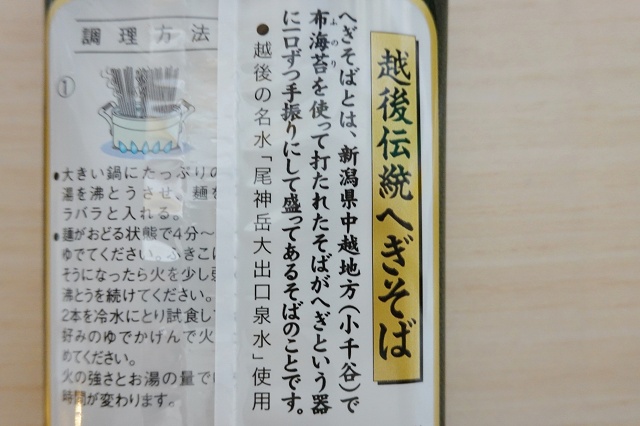 越後伝統へぎそば
へぎそばとは、新潟県中越地方(小千谷)で
布海苔を使って打たれたそばがへぎという器
ふのり
に一口ずつ手振りにして盛ってあるそばのことです。
●越後の名水「尾神岳大出口泉水」使用
調理方法
①
●大きい鍋にたっぷりの
湯を沸とうさせ、麺を
ラバラと入れる。
●麺がおどる状態で4分〜
ゆでてください。ふきこ
そうになったら火を少し
沸とうを続けてください。
2本を冷水にとり試食し
好みのゆでかげんで火
めてください。
火の強さとお湯の量で
時間が変わります。